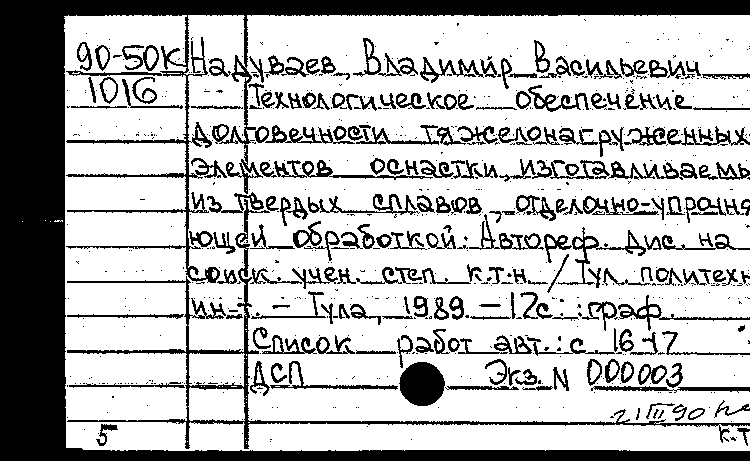 90-50К Надуваев, Владимир Васильевич
1016 Технологическое обеспечение
долговечности тяжелонагруженных
элементов оснастки, изготавливаемы
из твердых сплавов, отделочно-упрочня
ющей обработкой. Автореф. дис. на
соиск. учен. степ. к.т.н. / Тул. политехн
ин-т. - Тула, 1989 - 17с.: граф.
Список работ авт.: с 16-17
ДСП Экз. N 000003
21 III 90
5 к.т